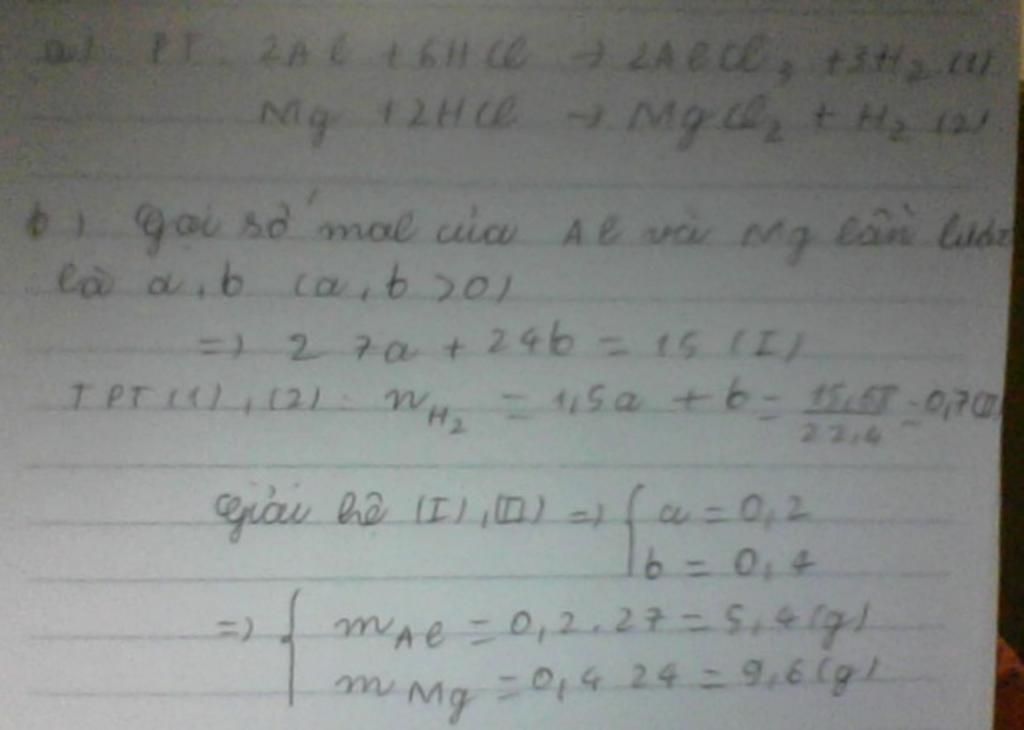 a) PT. 2Al + 6HCl → 2AlCl3 + 3H2 (1)
Mg + 2HCl → MgCl2 + H2 (2)
b) Gọi số mol của Al và Mg lần lượt
là a, b (a, b > 0)
=> 27a + 24b = 15 (I)
TPT (1), (2): nH2 = 1,5a + b = 15,68/22,4 = 0,7 (II)
Giải hệ (I), (II) => { a = 0,2
b = 0,4
=> { mAl = 0,2.27 = 5,4 (g)
mMg = 0,4 24 = 9,6 (g)